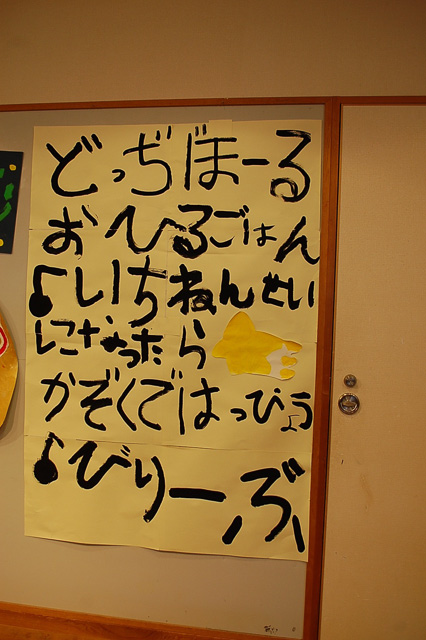 どっぢぼーる
おひるごはん
♪いちねんせい
になったら
かぞくではっぴょう
♪びりーぶ